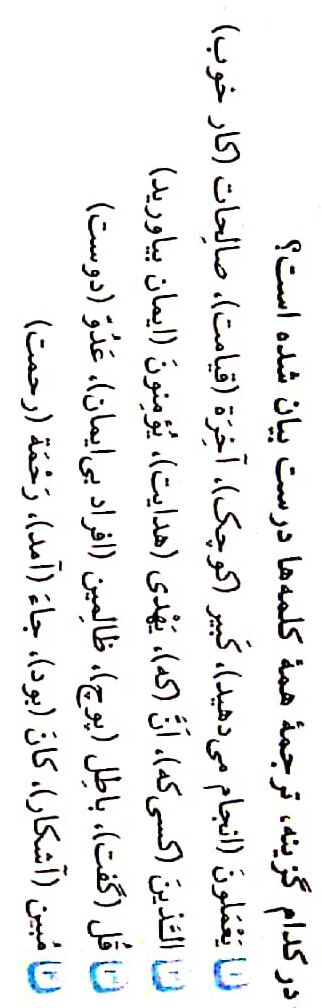 در کدام گزینه، ترجمهٔ همهٔ کلمه‌ها درست بیان شده است؟
۱ یَعْمَلونَ (انجام می‌دهید)، کَبیر (کوچک)، آخِرَة (قیامت)، صالِحات (کار خوب)
۲ الَّذینَ (کسی‌که)، اَنَّ (که)، یَهْدی (هدایت)، یُؤمِنونَ (ایمان بیاورید)
۳ قُل (گفت)، باطِل (پوچ)، ظالِمین (افراد بی‌ایمان)، عَدُوّ (دوست)
۴ مُبین (آشکار)، کانَ (بود)، جاءَ (آمد)، رَحْمَة (رحمت)